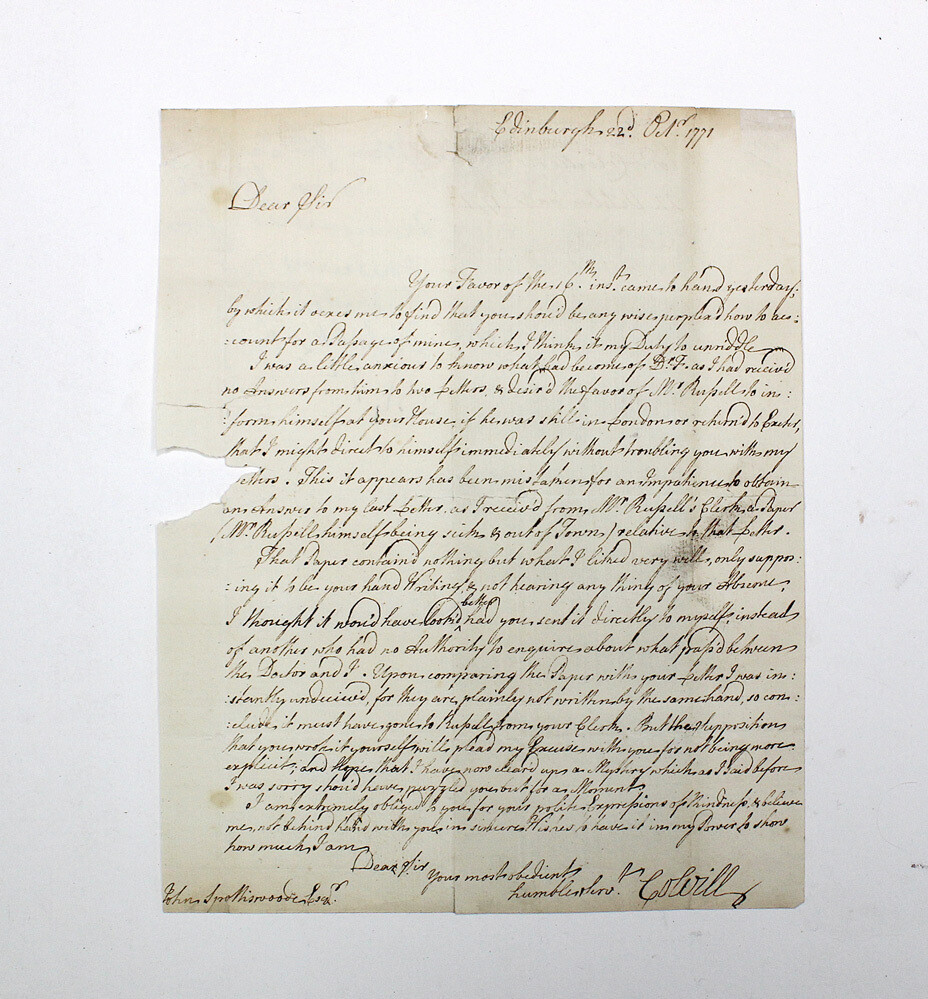 Edinburgh 22d. Octr. 1771
Dear Sir
Your Favor of the 16th. inst. came to hand yesterday,
by which it vexes me to find that you should be any wise perplex'd how to ac:
:count for a Passage of mine, which I think it my Duty to unriddle
I was a little anxious to know what had become of Dr. F. as I had receiv'd
no Answers from him to two Letters, & desir'd the favor of Mr. Russell to in:
:form himself at your House, if he was still in London or return'd to Exeter,
that I might direct to himself immediately without troubling you with my
Letters. This it appears has been mistaken for an Impatience to obtain
an Answer to my last Letter, as I receiv'd from Mr. Russell's Clerk a Paper
(Mr. Russell himself being sick & out of Town) relative to that Letter.
That Paper contain'd nothing but what I liked very well, only suppos:
:ing it to be your hand Writing, & not hearing any thing of your Absence,
I thought it wou'd have look'd better had you sent it directly to myself, instead
of another who had no Authority to enquire about what pass'd between
the Doctor and I. Upon comparing the Paper with your Letter I was in:
:stantly undeceiv'd, for they are plainly not written by the same hand, so con:
:clude it must have gone to Russell from your Clerk. But the Supposition
that you wrote it yourself will plead my Excuse with you for not being more
explicit; and Hope that I have now clear'd up a Mystery which as I said before
I was sorry should have puzzled you but for a Moment
I am extremely obliged to you for your polite Expressions of Kindness, & believe
me, not behind hand with you in sincere Wishes to have it in my Power to show
how much I am
Dear Sir
Your most obedient
humble Servt. Colvill
John Spottiswoode Esqr.